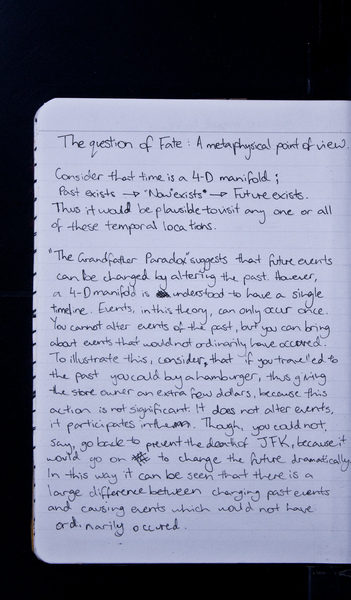 The question of Fate: A metaphysical point of view.
Consider that time is a 4-D manifold;
Past exists → "Now" exists → Future exists.
Thus it would be plausible to visit any one or all
of these temporal locations.
"The Grandfather Paradox" suggests that future events
can be changed by altering the past. However,
a 4-D manifold is understood to have a single
timeline. Events, in this theory, can only occur once.
You cannot alter events of the past, but you can bring
about events that would not ordinarily have occured.
To illustrate this, consider, that if you travelled to
the past you could buy a hamburger, thus giving
the store owner an extra few dollars, because this
action is not significant. It does not alter events,
it participates in them. Though, you could not,
say, go back to prevent the death of JFK, because it
would go on to change the future dramatically.
In this way it can be seen that there is a
large difference between changing past events
and causing events which would not have
ordinarily occured.